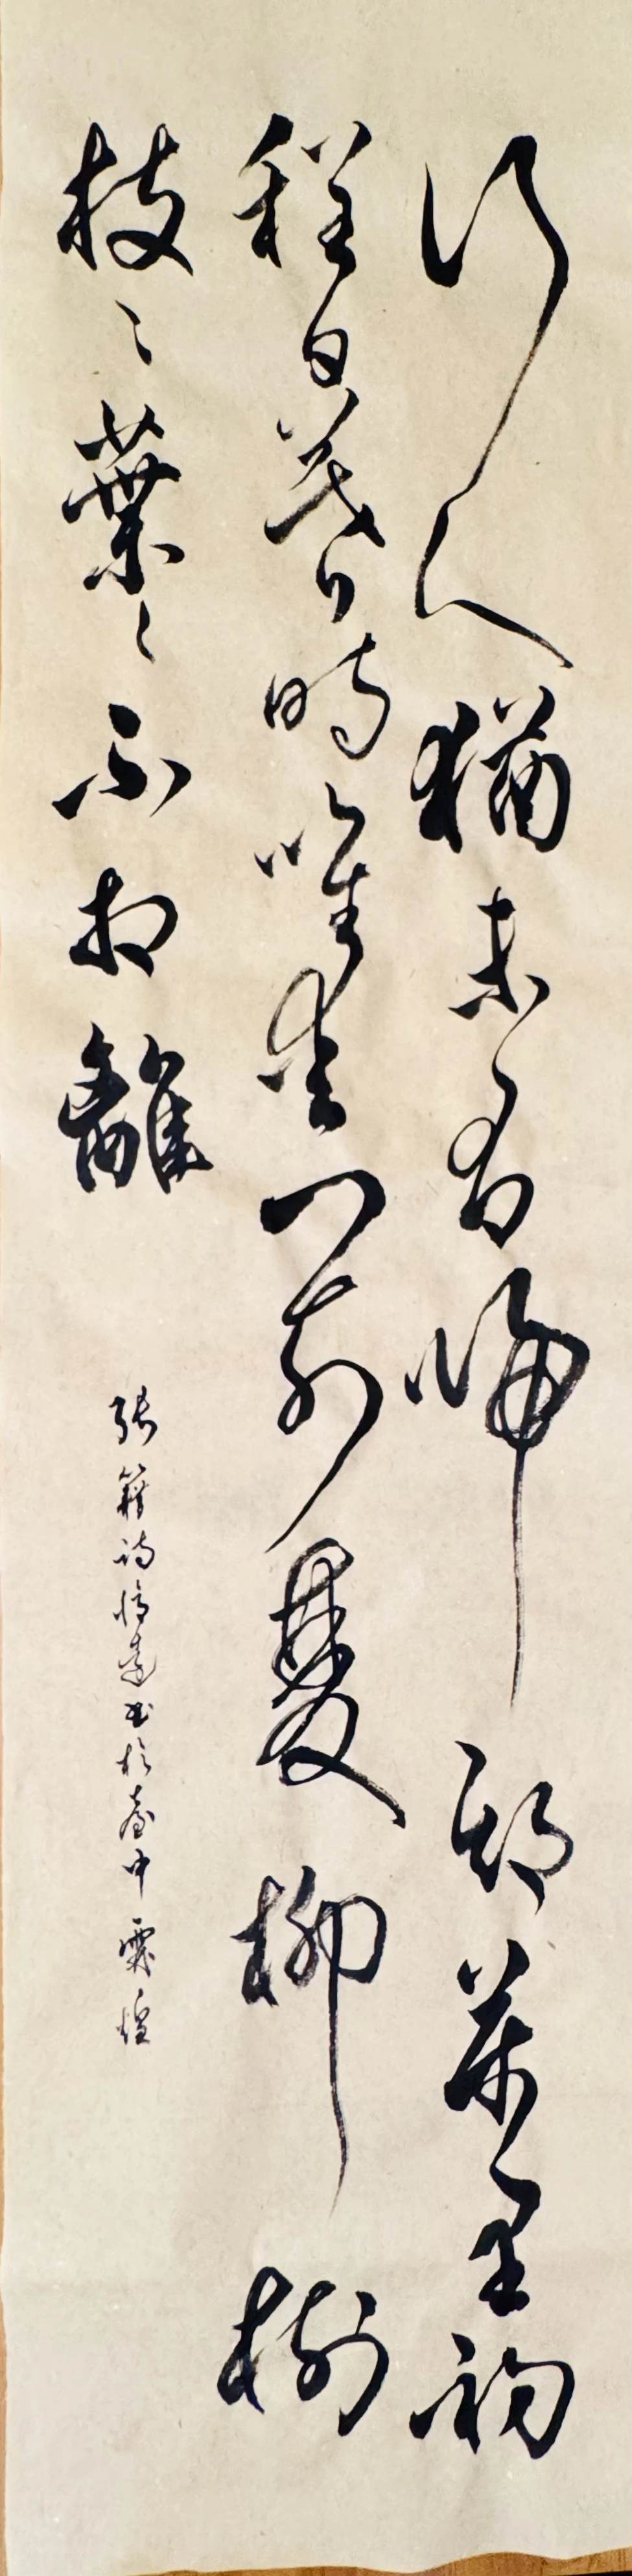 行人猶未有歸期萬里初
程日暮時唯愛門前雙柳樹
枝〻葉〻不相離
張籍詩憶遠書於臺中